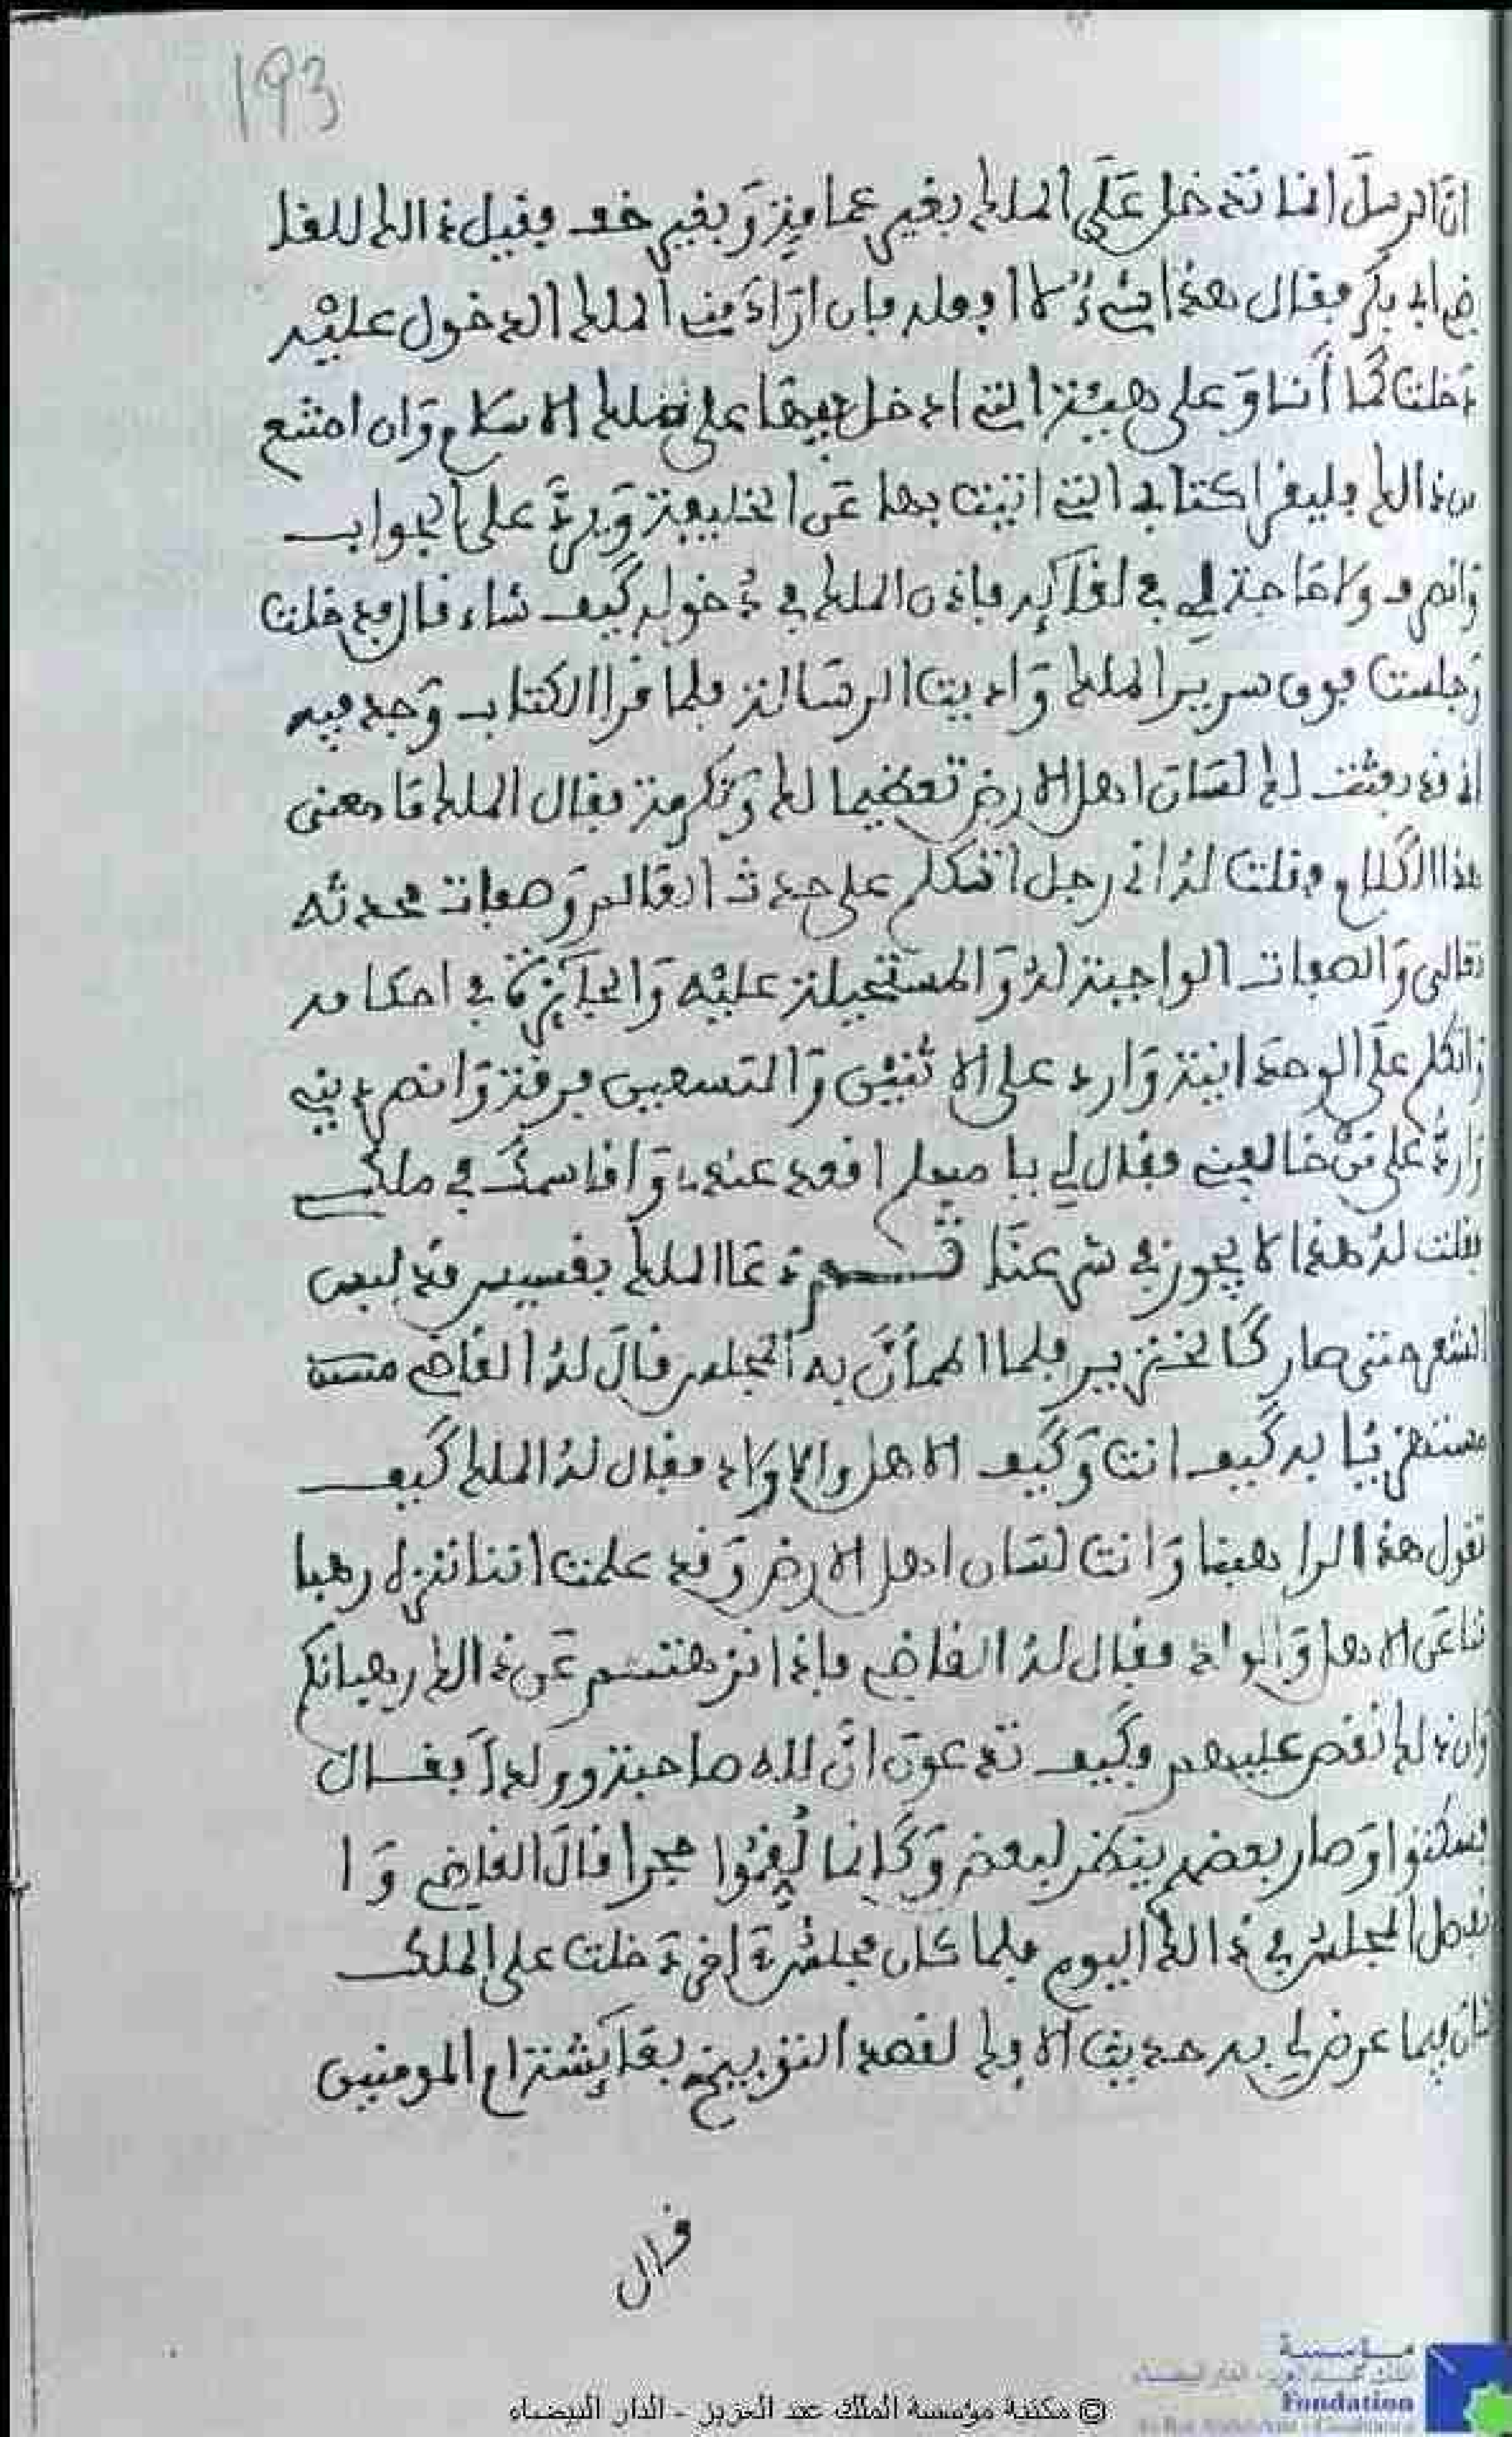 193
انّ الرسل انما تدخل على الملك بغير عمامة وبغير خف فقيل ذالك للقا
ضي ابي بكر فقال هذا شيءٌ لا افعله فان اراد مني الملك الدخول عليه
دخلت كما أنا وعلى هيئة التي ادخل بيها على ملك الاسلام وان امتنع
من ذالك فليقرا كتابي التي اتيت بها عن الخليفة ويرد علي الجواب
وانصرف ولا حاجة لي في لقايه فاذن الملك في دخوله كيف شاء قال فدخلت
وجلست فوق سرير الملك واديت الرسالة فلما قرا الكتاب وجد فيه
اني قد بعثت لك لسان اهل الارض تعظيما لك وتكرمة فقال الملك ما معنى
هذا الكلام فقلت له اني رجل اتكلم على حدث العالم وصفات محدثه
تعالى والصفات الواجبة له والمستحيلة عليه والجايزة في احكامه
واتكلم على الوحدانية وارد على الاثنين والتسعين فرقة وانصر ديني
وارد على من خالفني فقال لي يا مسلم اقعد عندي وانا اقاسمك في ملكي
فقلت له هذا لا يجوز في شرعنا ثم دعا الملك بقسيس قد لبس
الشعر حتى صار كالخنزير فلما اطمأنّ به المجلس قال له القاضي
مستهزيا به كيف انت وكيف الاهل والاولاد فقال له الملك كيف
تقول هذا لراهبنا وانت لسان اهل الارض وقد علمت اننا ننزه رهبا
ننا عن الاهل والولد فقال له القاضي فاذا نزهتم عن ذالك رهبانكم
وان ذلك نقص عليهم فكيف تدعون انّ لله صاحبة وولدا فقال
فسكتوا وصار بعضهم ينظر لبعض وكانما لُقِمُوا حجرا قال القاضي وا
نفصل المجلس في ذالك اليوم فلما كان مجلس اخر دخلت على الملك
فكان فيما عرض لي به حديث الافك لقصد التوبيخ بعايشة ام المومنين
قال
© مكتبة مؤسسة الملك عبد العزيز - الدار البيضاء
مؤسسة
Fondation